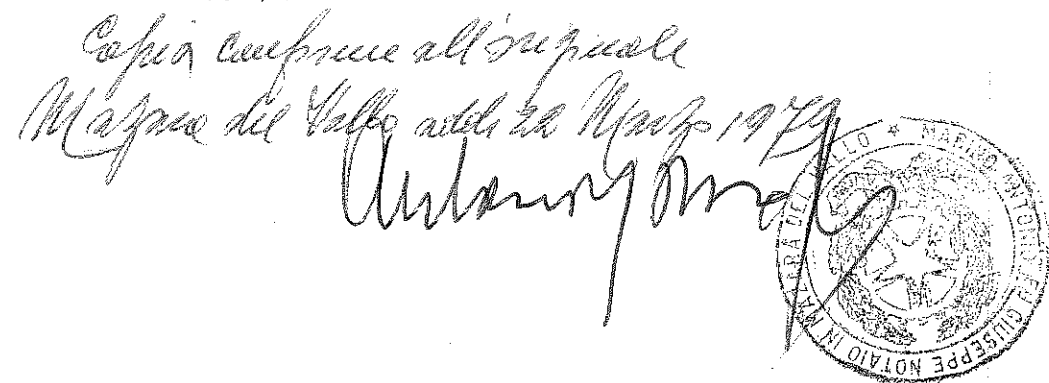 Copia conforme all'originale
Mazara del Vallo addì 22 Marzo 1979
MARINO ANTONINO GIUSEPPE NOTAIO IN MAZARA DEL VALLO